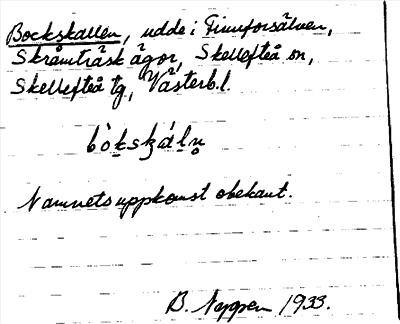 Bockskallen, udde i Finnforsälven,
Skråmträsk ägor, Skellefteå sn,
Skellefteå tg, Västerb.l.
bòkskáln̥
Namnets uppkomst obekant.
B. Nyppen 1933.